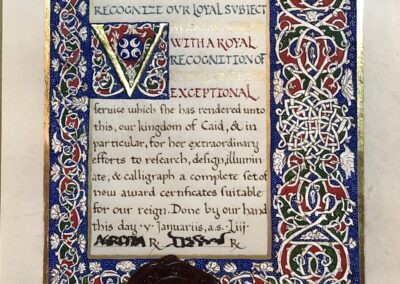 RECOGNIZE OUR LOYAL SUBJECT
V
WITH A ROYAL
RECOGNITION OF
EXCEPTIONAL
service which she has rendered unto
this, our kingdom of Caid, & in
particular, for her extraordinary
efforts to research, design, illumin
ate, & calligraph a complete set of
new award certificates suitable
for our reign. Done by our hand
this day · v · Januariis, a.s. Liij ·
R R